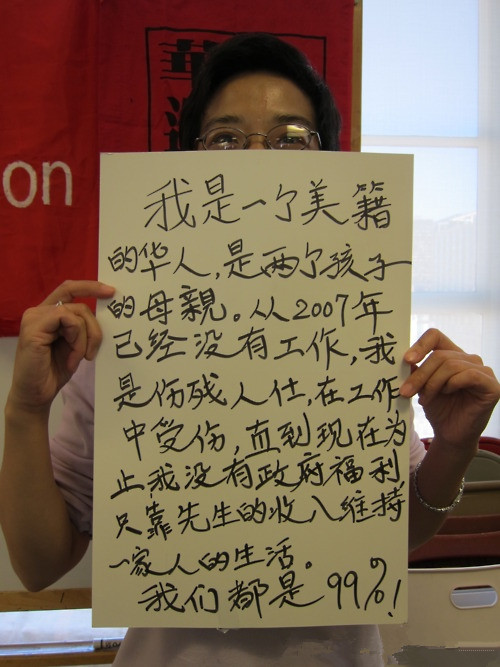 華
on
我是一个美籍
的华人,是两个孩子
的母親。从2007年
已经没有工作,我
是伤残人仕,在工作
中受伤,直到现在为
止,我没有政府福利
只靠先生的收入维持
一家人的生活。
我们都是99%!